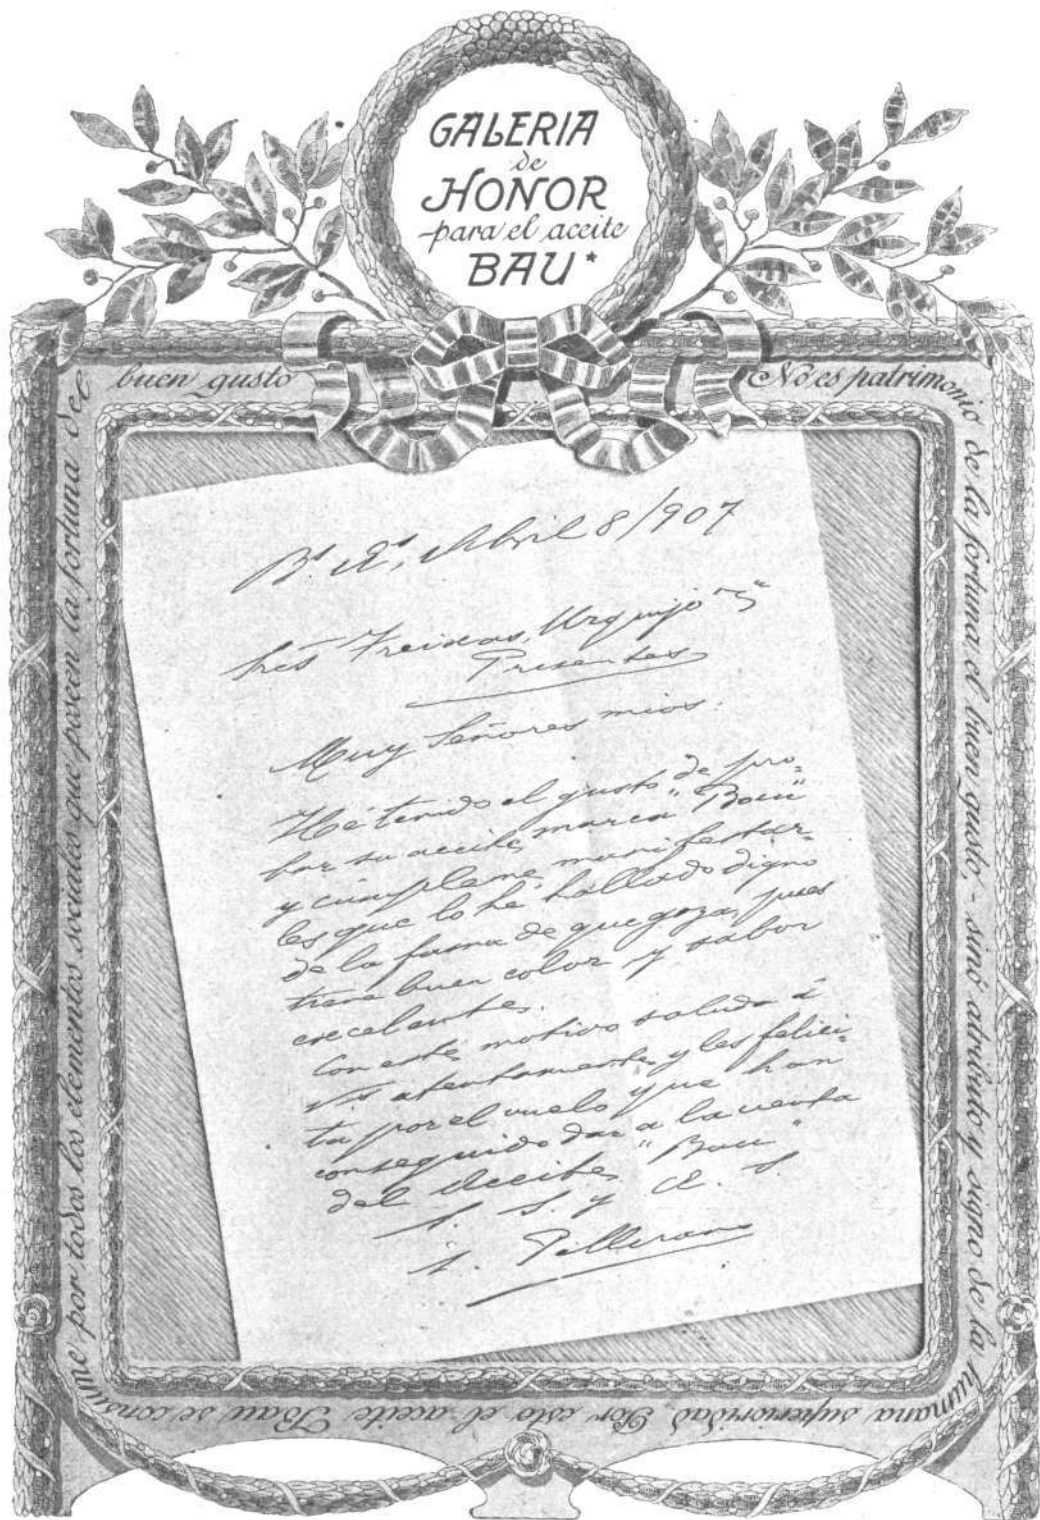 GALERIA
de
HONOR
para el aceite
BAU*
No es patrimonio de la fortuna el buen gusto, - sinó atributo y signo de la humana superioridad Por esto el aceite Bau se consume por todos los elementos sociales que parean la fortuna del buen gusto
Bs As, Abril 8/907
Freixas, Urquijo
Presentes
Muy Señores mios.
Hé tenido el gusto de pro-
bar su aceite, marca "Bau"
y cúmpleme, manifestar-
les que lo hé hallado digno
de la fama de que goza, pues
tiene buen color y sabor
excelente.
Con este motivo saluda á
Vs atentamente y les felici-
ta por el vuelo que han
conseguido dar a la venta
del Aceite "Bau"
S. S. y A. S.
Pellerano